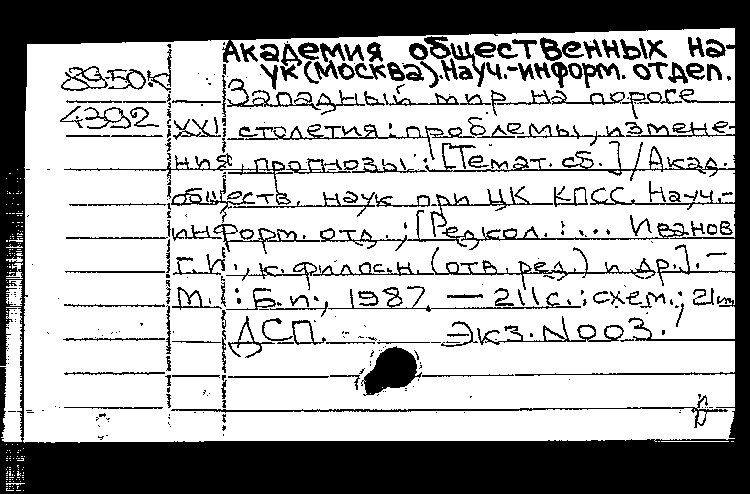 Академия общественных на-
ук (Москва). Науч.-информ. отдел.
8950к Западный мир на пороге
4392 XXI столетия: проблемы, измене-
ния, прогнозы: [Темат. сб.] / Акад.
обществ. наук при ЦК КПСС. Науч.-
информ. отд.; [Редкол.: ... Иванов
г.И., к. филос.н. (отв. ред.) и др.]. -
М.: Б.и., 1987. — 211 с.: схем.; 21
ДСП. Экз. N003.